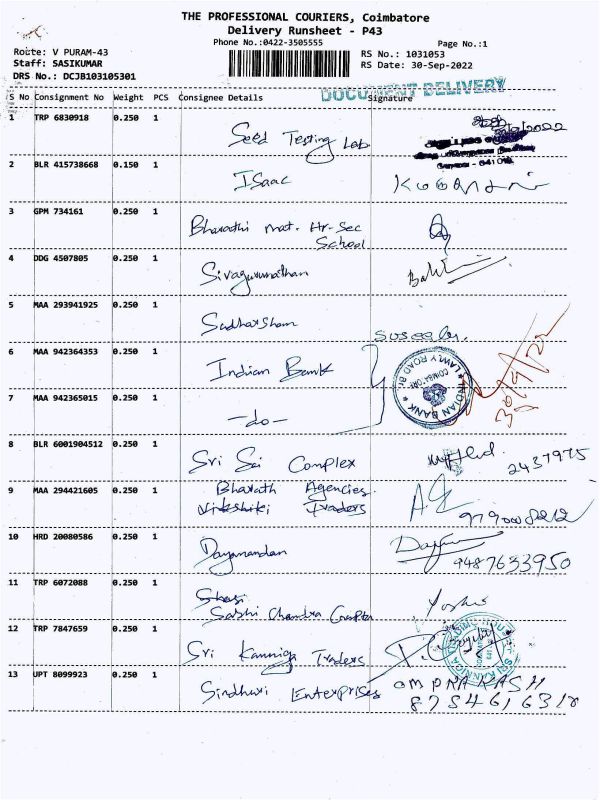 THE PROFESSIONAL COURIERS, Coimbatore
Delivery Runsheet - P43
Phone No.:0422-3505555
Page No.:1
Route: V PURAM-43
RS No.: 1031053
Staff: SASIKUMAR
RS Date: 30-Sep-2022
DRS No.: DCJB103105301
DOCUMENT DELIVERY
S No Consignment No Weight PCS Consignee Details Signature
1 TRP 6830918 0.250 1
Seed Testing Lab
2 BLR 415738668 0.150 1
ISaac
3 GPM 734161 0.250 1
Bharathi mat. Hr-Sec
School
4 DDG 4507805 0.250 1
Sivagurunathan
5 MAA 293941925 0.250 1
Sudharsham
Suseela
6 MAA 942364353 0.250 1
Indian Bank
INDIAN BANK LAWLY ROAD BR. COIMBATORE
30/9/22
7 MAA 942365015 0.250 1
-do-
8 BLR 6001904512 0.250 1
Sri Sai Complex
2437975
9 MAA 294421605 0.250 1
Bharath Agencies
Traders
10 HRD 20080586 0.250 1
Dayanandan
9487633950
11 TRP 6072088 0.250 1
Shasi
Sashi Chandra Gupta
12 TRP 7847659 0.250 1
Sri Kanniga Traders
13 UPT 8099923 0.250 1
Sindhuri Enterprises
OM PRAKASH